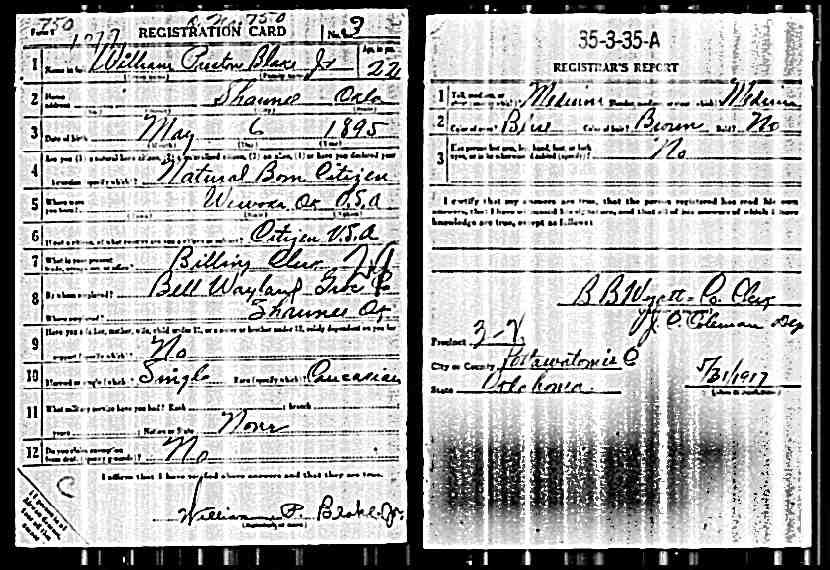 Form 1 750 REGISTRATION CARD No. 9
1 Name in full William Preston Blake Jr Age, in yrs. 22
2 Home address Shawnee Okla
3 Date of birth May 6 1895
4 Are you (1) a natural born citizen, (2) a naturalized citizen, (3) an alien, (4) or have you declared your
intention (specify which)? Natural Born Citizen
5 Where were you born? Wewoka Ok U.S.A
6 If not a citizen, of what country are you a citizen or subject? Citizen U.S.A
7 What is your present trade, occupation, or office? Billing Clerk
8 By whom employed? Bell Wayland Groc Co
Where employed? Shawnee Ok.
9 Have you a father, mother, wife, child under 12, or a sister or brother under 12, solely dependent on you for
support (specify which)? No
10 Married or single (which)? Single Race (specify which)? Caucasian
11 What military service have you had? Rank branch
years Nation or State None
12 Do you claim exemption from draft (specify grounds)? No
I affirm that I have verified above answers and that they are true.
C
William P. Blake Jr.
(Signature or mark)
35-3-35-A
REGISTRAR'S REPORT
1 Tall, medium, or short (specify which)? Medium Slender, medium, or stout (which)? Medium
2 Color of eyes? Blue Color of hair? Brown Bald? No
3 Has person lost arm, leg, hand, foot, or both
eyes, or is he otherwise disabled (specify)? No
I certify that my answers are true, that the person registered has read his own
answers, that I have witnessed his signature, and that all of his answers of which I have
knowledge are true, except as follows:
B B Wyatt Co Clerk
J. C. Coleman Dep
Precinct 3-2
City or County Pottawatomie C
State Oklahoma
5/31/1917
(Date of registration)